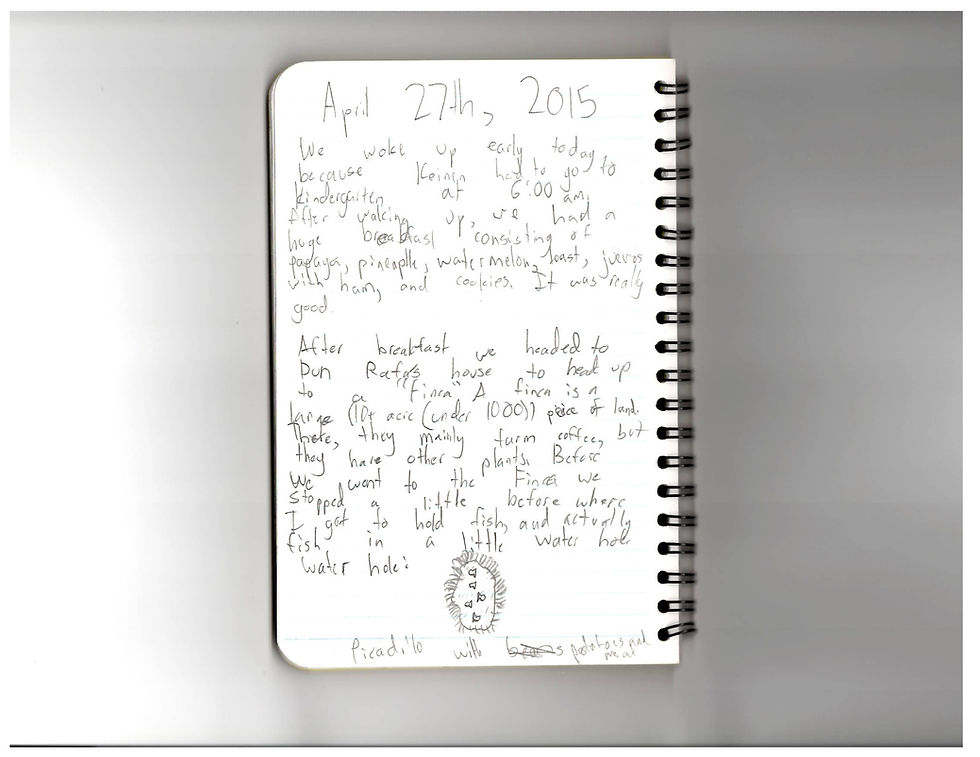 April 27th, 2015
We woke up early today
because Keinin had to go to
kindergarten at 6:00 am,
After waking up, we had a
huge breakfast consisting of
papaya, pineaplle, watermelon, toast, juevos
with ham, and cookies. It was really
good.
After breakfast we headed to
Dun Rafa's house to head up
to a "Finca" A finca is a
large (10+ acre (under 1000)) piece of land.
There, they mainly farm coffee, but
they have other plants. Before
We went to the Finca we
stopped a little before where
I got to hold fish, and actually
fish in a little water hole
water hole:
Picadillo with potatoes and
meat